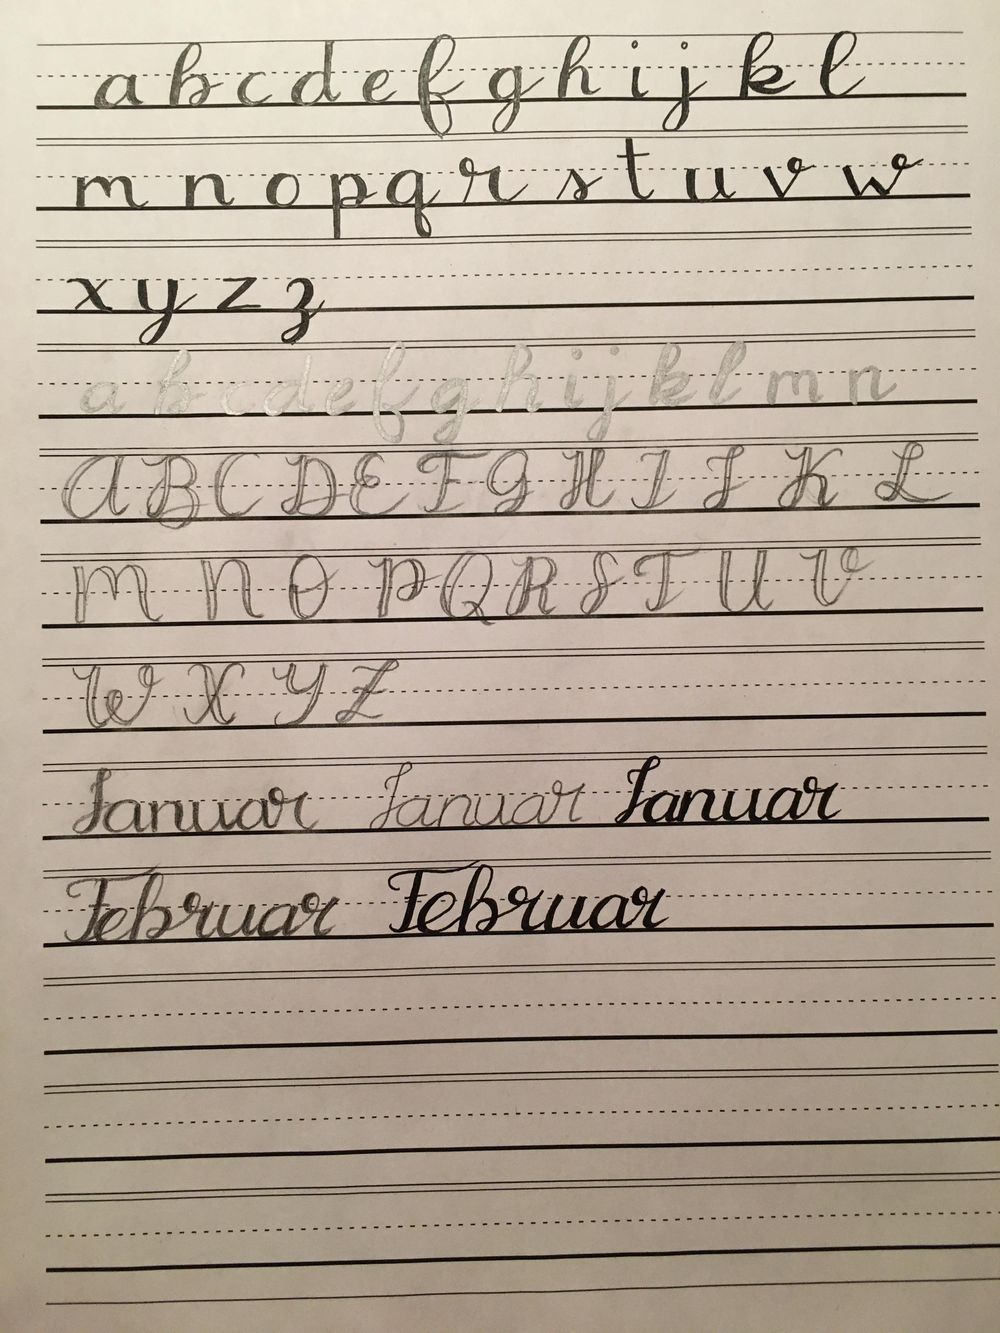 a b c d e f g h i j k l
m n o p q r s t u v w
x y z z
a b c d e f g h i j k l m n
A B C D E F G H I J K L
M N O P Q R S T U V
W X Y Z
Januar Januar Januar
Februar Februar